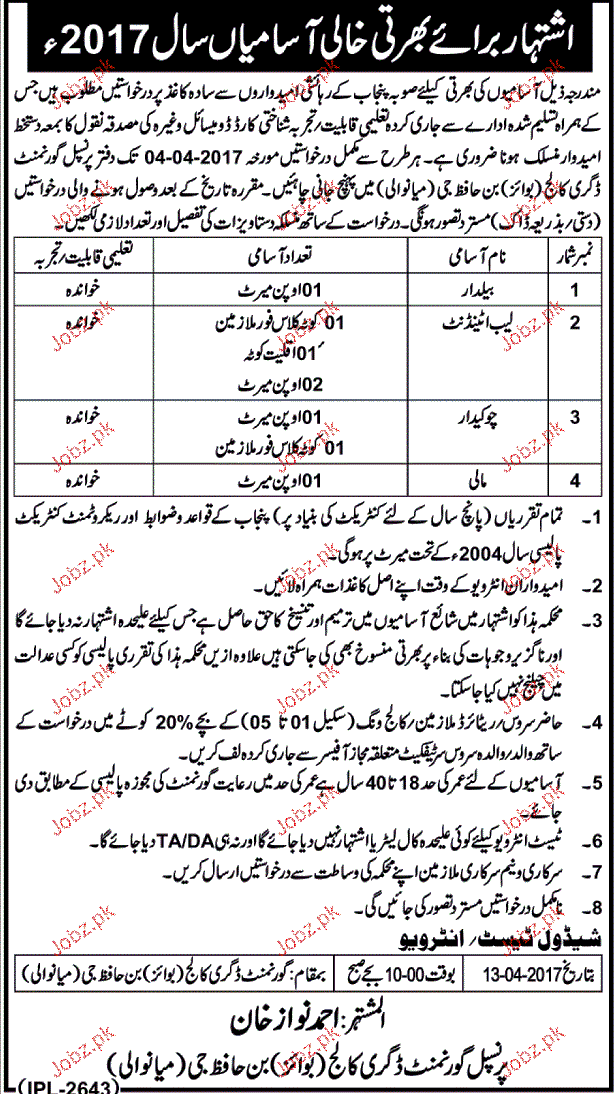 اشتہار برائے بھرتی خالی آسامیاں سال 2017ء
مندرجہ ذیل آسامیوں کی بھرتی کیلئے صوبہ پنجاب کے رہائشی امیدواروں سے سادہ کاغذ پر درخواستیں مطلوب ہیں جس
کے ہمراہ تسلیم شدہ ادارے سے جاری کردہ تعلیمی قابلیت/تجربہ شناختی کارڈ ڈومیسائل وغیرہ کی مصدقہ نقول کا بمعہ دستخط
امیدوار منسلک ہونا ضروری ہے۔ ہر طرح سے مکمل درخواستیں مورخہ 04-04-2017 تک دفتر پرنسپل گورنمنٹ
ڈگری کالج (بوائز) بن حافظ جی (میانوالی) میں پہنچ جانی چاہئیں۔ مقررہ تاریخ کے بعد وصول ہونے والی درخواستیں
(دستی/بذریعہ ڈاک) مسترد تصور ہونگی۔ درخواست کے ساتھ منسلکہ دستاویزات کی تفصیل اور تعداد لازمی لکھیں۔
نمبر شمار نام آسامی تعداد آسامی تعلیمی قابلیت/تجربہ
1 بیلدار 01 اوپن میرٹ خواندہ
2 لیب اٹینڈنٹ 01 کوٹہ کلاس فور ملازمین خواندہ
01 اقلیت کوٹہ
02 اوپن میرٹ
3 چوکیدار 01 اوپن میرٹ خواندہ
01 کوٹہ کلاس فور ملازمین
4 مالی 01 اوپن میرٹ خواندہ
1۔ تمام تقرریاں (پانچ سال کے لئے کنٹریکٹ کی بنیاد پر) پنجاب کے قواعد و ضوابط اور ریکروٹمنٹ کنٹریکٹ
پالیسی سال 2004ء کے تحت میرٹ پر ہوگی۔
2۔ امیدواران انٹرویو کے وقت اپنے اصل کاغذات ہمراہ لائیں۔
3۔ محکمہ ہذا کو اشتہار میں شائع آسامیوں میں ترمیم اور تنسیخ کا حق حاصل ہے جس کیلئے علیحدہ اشتہار نہ دیا جائے گا
اور ناگزیر وجوہات کی بناء پر بھرتی منسوخ بھی کی جاسکتی ہیں علاوہ ازیں محکمہ ہذا کی تقرری پالیسی کو کسی عدالت
میں چیلنج نہیں کیا جاسکتا۔
4۔ حاضر سروس/ریٹائرڈ ملازمین/کالج ونگ (سکیل 01 تا 05) کے بچے 20% کوٹے میں درخواست کے
ساتھ والد/والدہ سروس سرٹیفکیٹ متعلقہ مجاز آفیسر سے جاری کردہ لف کریں۔
5۔ آسامیوں کے لئے عمر کی حد 18 تا 40 سال ہے عمر کی حد میں رعایت گورنمنٹ کی مجوزہ پالیسی کے مطابق دی
جائے۔
6۔ ٹیسٹ انٹرویو کیلئے کوئی علیحدہ کال لیٹر یا اشتہار نہیں دیا جائے گا اور نہ ہی TA/DA دیا جائے گا۔
7۔ سرکاری و نیم سرکاری ملازمین اپنے محکمہ کی وساطت سے درخواستیں ارسال کریں۔
8۔ نامکمل درخواستیں مسترد تصور کی جائیں گی۔
شیڈول ٹیسٹ/انٹرویو
بتاریخ 13-04-2017 بوقت 10-00 بجے صبح بمقام: گورنمنٹ ڈگری کالج (بوائز) بن حافظ جی (میانوالی)
المشتہر: احمد نواز خان
پرنسپل گورنمنٹ ڈگری کالج (بوائز) بن حافظ جی (میانوالی)
(IPL-2643)
Jobz.pk